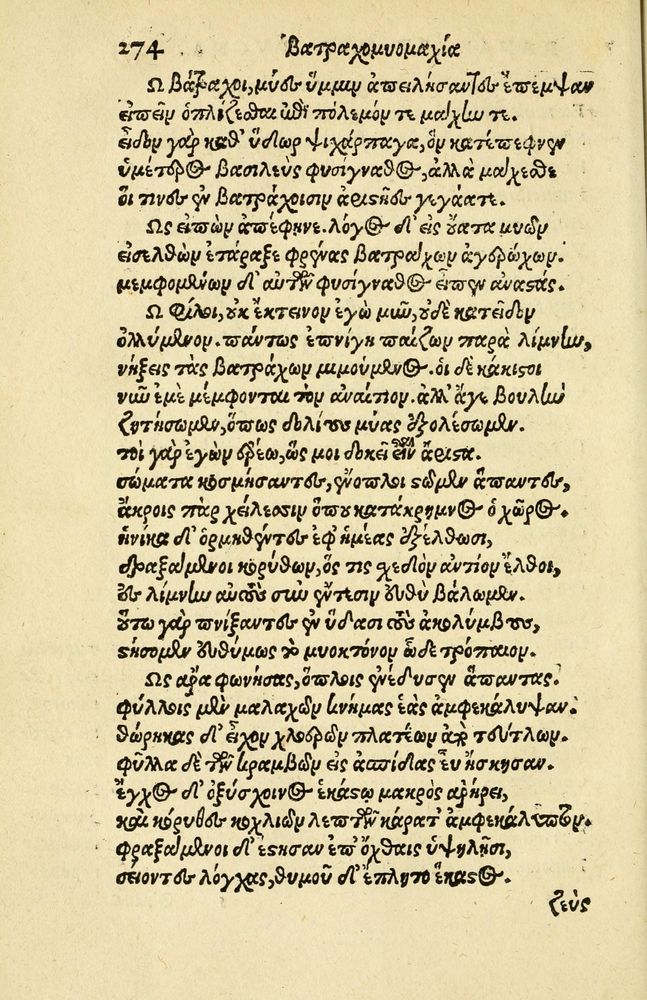 274 Βατραχομυομαχία
Ω βάτραχοι, μύες ὔμμιν ἀπειλήσαντες ἔπεμψαν
εἰπεῖν ὁπλίζεσθαι ἐπὶ πόλεμόν τε μάχην τε.
εἶδον γὰρ καθ' ὕδωρ ψιχάρπαγα, ὃν κατέπεφνεν
ὑμέτερος βασιλεὺς φυσίγναθος, ἀλλὰ μάχεσθε
οἵ τινες ἐν βατράχοισιν ἀριστῆες γεγάατε.
Ως εἰπὼν ἀπέφηνε. λόγος δ' εἰς ὔατα μυῶν
εἰσελθὼν ἐτάραξε φρένας βατράχων ἀγερώχων.
μεμφομένων δ' αὐτῶν φυσίγναθος εἶπεν ἀναστάς.
Ω φίλοι, οὐκ ἔκτεινον ἐγὼ μῦν, οὐδὲ κατεῖδον
ὀλλύμενον. πάντως ἐπνίγη παίζων παρὰ λίμνην,
νήξεις τὰς βατράχων μιμούμενος. οἱ δὲ κάκιστοι
νῦν ἐμὲ μέμφονται τὸν ἀναίτιον. ἀλλ' ἄγε βουλὴν
ζητήσωμεν, ὅπως δολίους μύας ἐξολέσωμεν.
τοὶ γὰρ ἐγὼν ἐρέω, ὥς μοι δοκεῖ εἶναι ἄριστα.
σώματα κοσμήσαντες, ἐνόπλοι στῶμεν ἅπαντες,
ἄκροις πὰρ χείλεσιν ὅπου κατάκρημνος ὁ χῶρος.
ἡνίκα δ' ὁρμηθέντες ἐφ' ἡμέας ἐξέλθωσι,
δραξάμενοι κορύθων, ὅς τις σχεδὸν ἀντίον ἔλθοι,
ἐς λίμνην αὐτοὺς σὺν ἔντεσιν εὐθὺ βάλωμεν.
οὕτω γὰρ πνίξαντες ἐν ὕδασι τοὺς ἀκολύμβους,
στήσομεν εὐθύμως τὸ μυοκτόνον ὧδε τρόπαιον.
Ως ἄρα φωνήσας, ὅπλοις ἐνέδυσεν ἅπαντας.
φύλλοις μὲν μαλαχῶν κνήμας ἑὰς ἀμφεκάλυψαν.
θώρηκας δ' εἶχον χλοερῶν πλατέων ἀπὸ τεύτλων.
φῦλλα δὲ τῶν κραμβῶν εἰς ἀσπίδας εὖ ἤσκησαν.
ἔγχος δ' ὀξύσχοινος ἑκάστῳ μακρὸς ἀρήρει,
καὶ κόρυθες κοχλιῶν λεπτῶν κάρατ' ἀμφεκάλυπτον.
φραξάμενοι δ' ἔστησαν ἐπ' ὄχθαις ὑψηλῇσι,
σείοντες λόγχας, θυμοῦ δ' ἔπλητο ἕκαστος.
ζεὺς